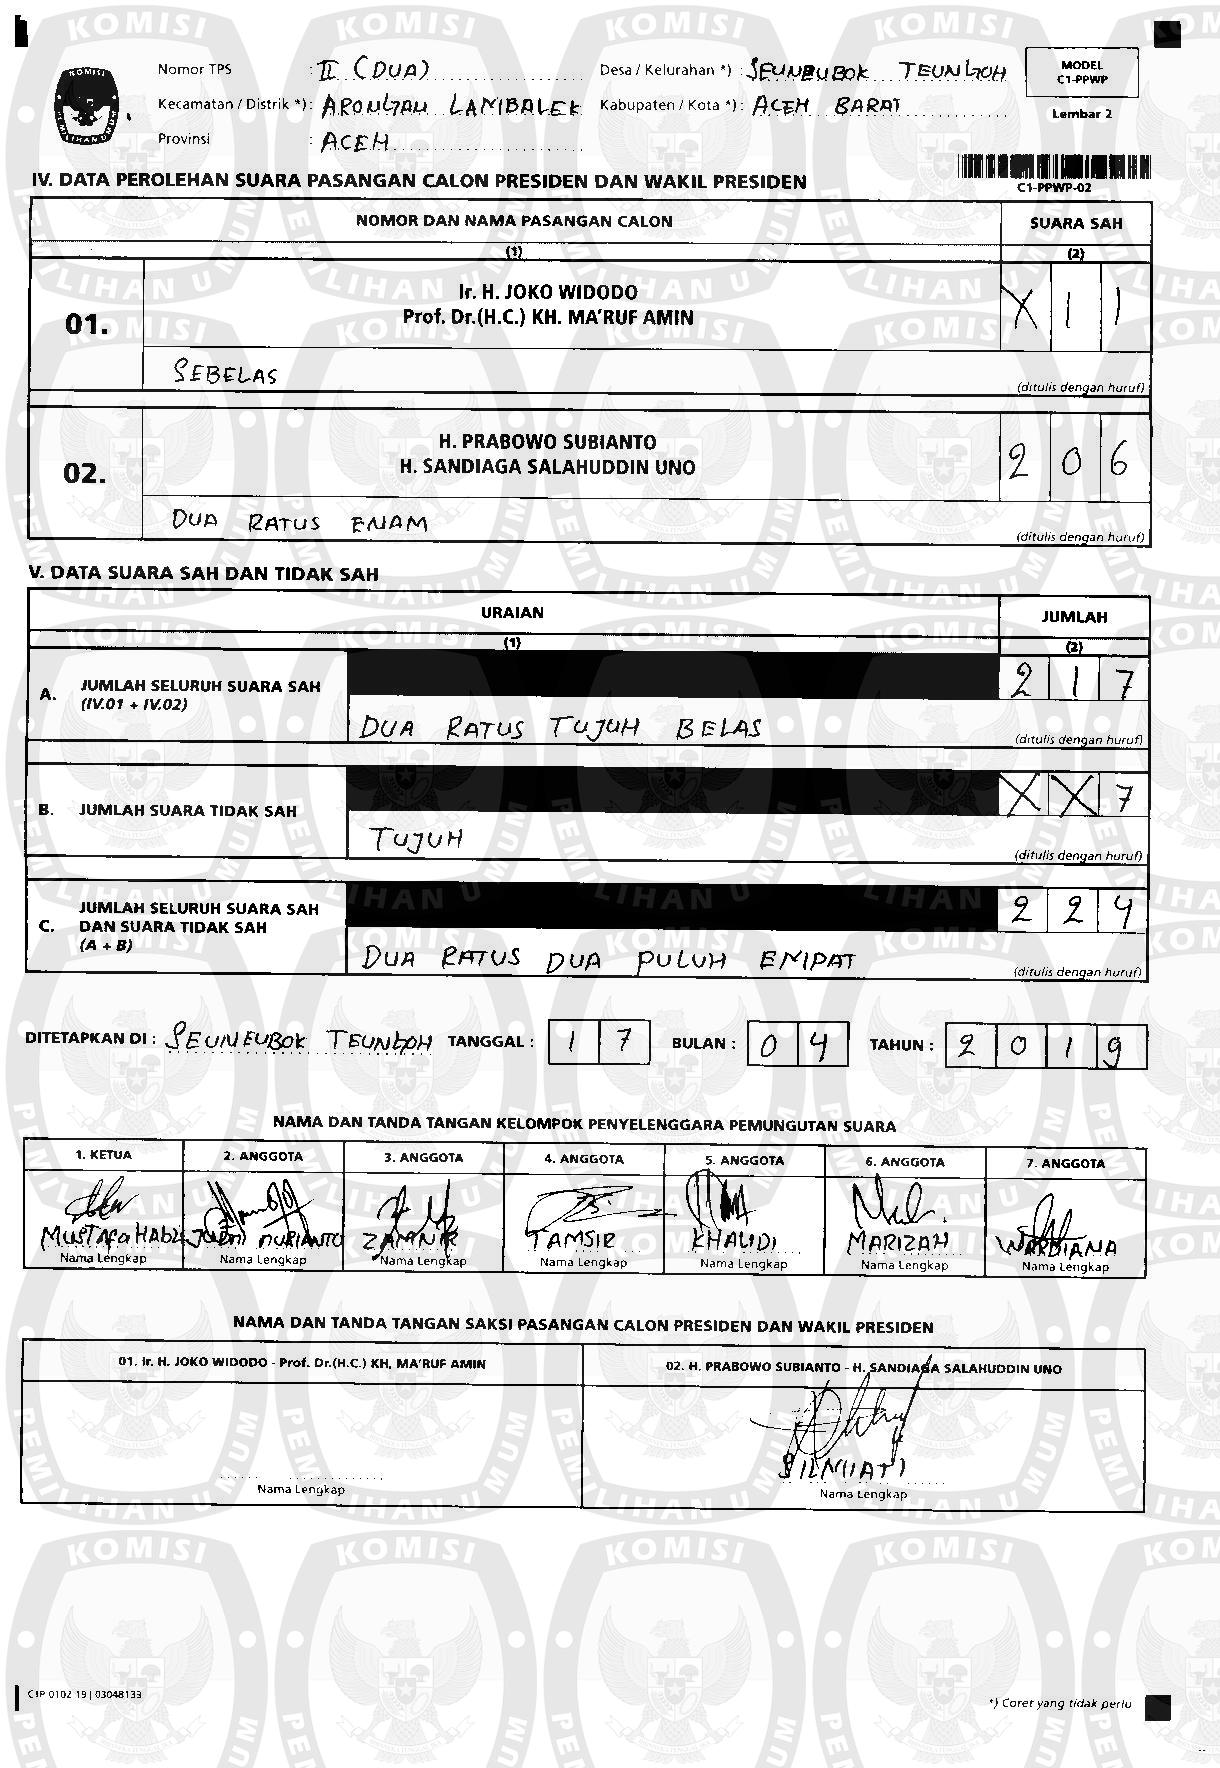 Nomor TPS : II (DUA) Desa / Kelurahan *) : SEUNEUBOK TEUNGOH
MODEL
C1-PPWP
Kecamatan / Distrik *) : ARONGAN LAMBALEK Kabupaten / Kota *) : ACEH BARAT
Lembar 2
Provinsi : ACEH
C1-PPWP-02
IV. DATA PEROLEHAN SUARA PASANGAN CALON PRESIDEN DAN WAKIL PRESIDEN
NOMOR DAN NAMA PASANGAN CALON SUARA SAH
(1) (2)
01. Ir. H. JOKO WIDODO
Prof. Dr.(H.C.) KH. MA'RUF AMIN X 1 1
SEBELAS
(ditulis dengan huruf)
02. H. PRABOWO SUBIANTO
H. SANDIAGA SALAHUDDIN UNO 2 0 6
DUA RATUS ENAM
(ditulis dengan huruf)
V. DATA SUARA SAH DAN TIDAK SAH
URAIAN JUMLAH
(1) (2)
A. JUMLAH SELURUH SUARA SAH
(IV.01 + IV.02) 2 1 7
DUA RATUS TUJUH BELAS
(ditulis dengan huruf)
B. JUMLAH SUARA TIDAK SAH X X 7
TUJUH
(ditulis dengan huruf)
C. JUMLAH SELURUH SUARA SAH
DAN SUARA TIDAK SAH
(A + B) 2 2 4
DUA RATUS DUA PULUH EMPAT
(ditulis dengan huruf)
DITETAPKAN DI : SEUNEUBOK TEUNGOH TANGGAL : 1 7 BULAN : 0 4 TAHUN : 2 0 1 9
NAMA DAN TANDA TANGAN KELOMPOK PENYELENGGARA PEMUNGUTAN SUARA
1. KETUA 2. ANGGOTA 3. ANGGOTA 4. ANGGOTA 5. ANGGOTA 6. ANGGOTA 7. ANGGOTA
NURIANTO TAMSIR KHALIDI MARIZAH WARDIANA
Nama Lengkap Nama Lengkap Nama Lengkap Nama Lengkap Nama Lengkap Nama Lengkap Nama Lengkap
NAMA DAN TANDA TANGAN SAKSI PASANGAN CALON PRESIDEN DAN WAKIL PRESIDEN
01. Ir. H. JOKO WIDODO - Prof. Dr.(H.C.) KH. MA'RUF AMIN 02. H. PRABOWO SUBIANTO - H. SANDIAGA SALAHUDDIN UNO
Nama Lengkap Nama Lengkap
C1P 0102 19 | 03048133
*) Coret yang tidak perlu